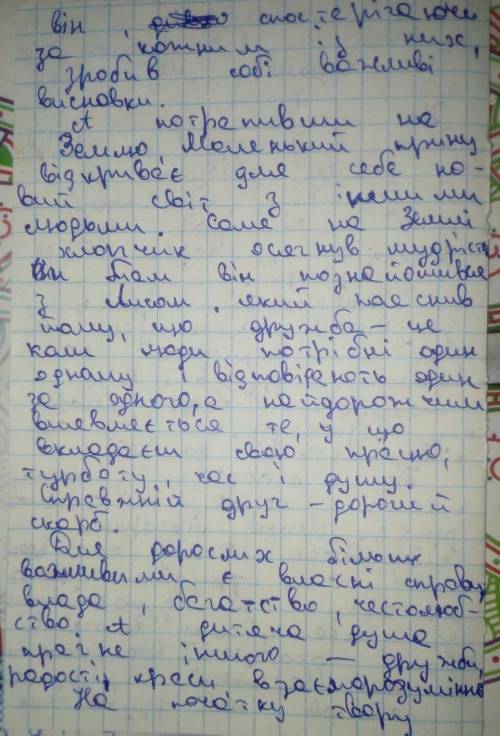 він, спостерігаючи
за кожним із них,
зробив собі важливі
висновки.
А потрапивши на
Землю, Маленький принц
відкриває для себе но-
вий світ з іншими
людьми. Саме на Землі
хлопчик осягнув мудрість
Там він познайомився
з Лисом, який пояснив
йому, що дружба – це
коли люди потрібні один
одному і відповідають один
за одного, а найдорожчим
виявляється те, у що
вкладаєш свою працю,
турботу, час і душу.
Справжній друг – дорогий
скарб.
Для дорослих більш
важливими є власні справи,
влада, багатство, честолюб-
ство. А дитяча душа
прагне іншого — дружби,
радості, краси, взаєморозуміння
На початку твору